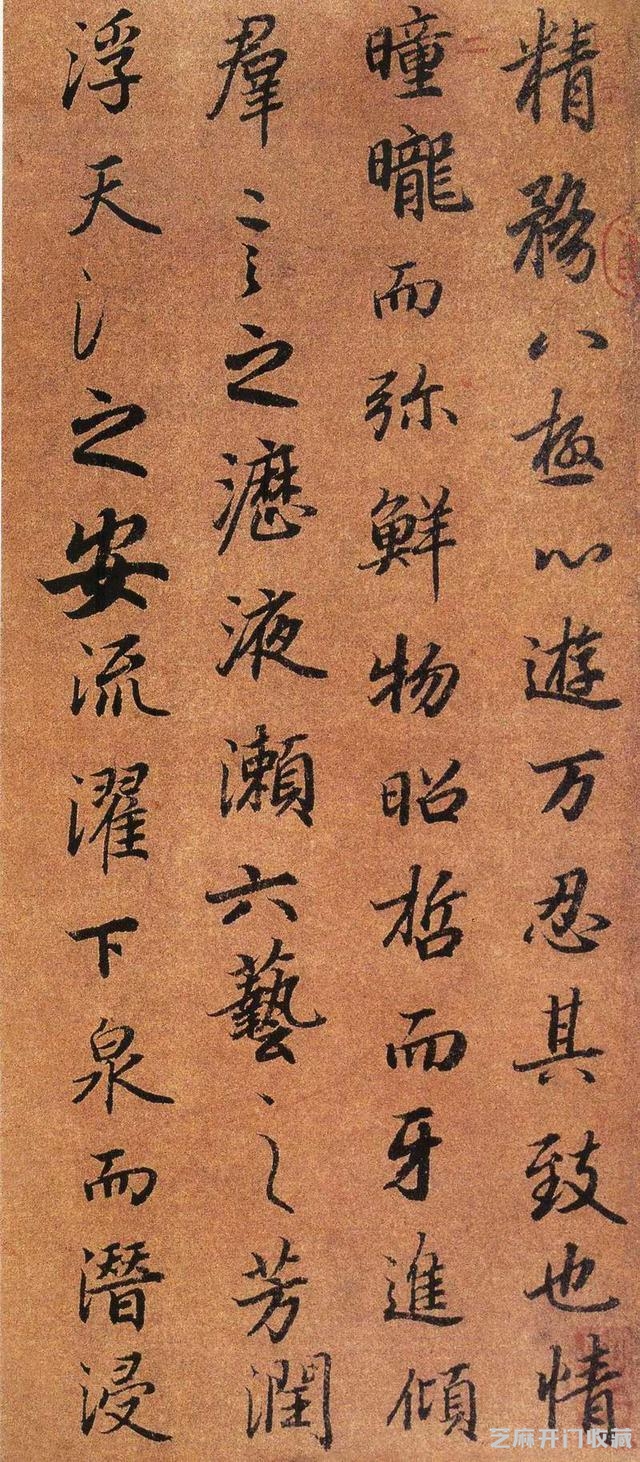 精務八極心遊万忍其致也情
曈曨而弥鮮物昭晢而牙進傾
羣言之瀝液瀬六藝之芳潤
浮天氵之安流濯下泉而潛浸
芝麻开门收藏